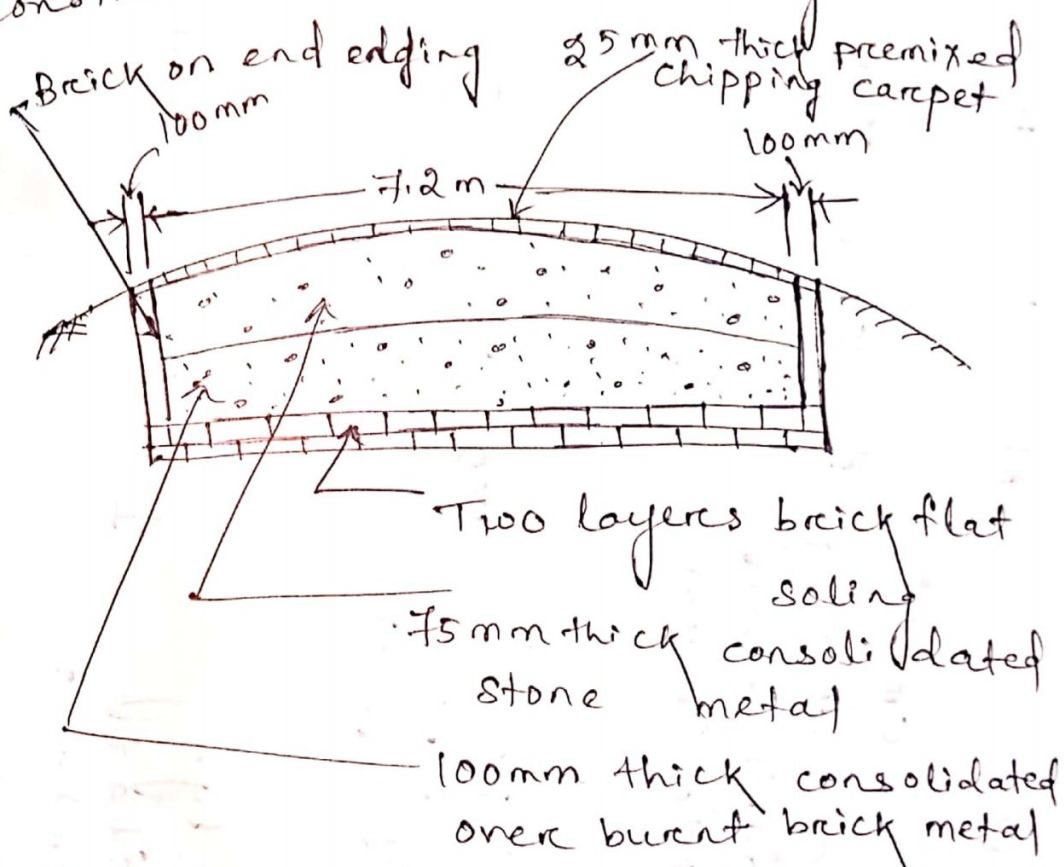 Brick on end edging
100mm
25mm thick premixed
chipping carpet
100mm
7.2 m
Two layers brick flat
soling
75mm thick consolidated
stone metal
100mm thick consolidated
over burent brick metal